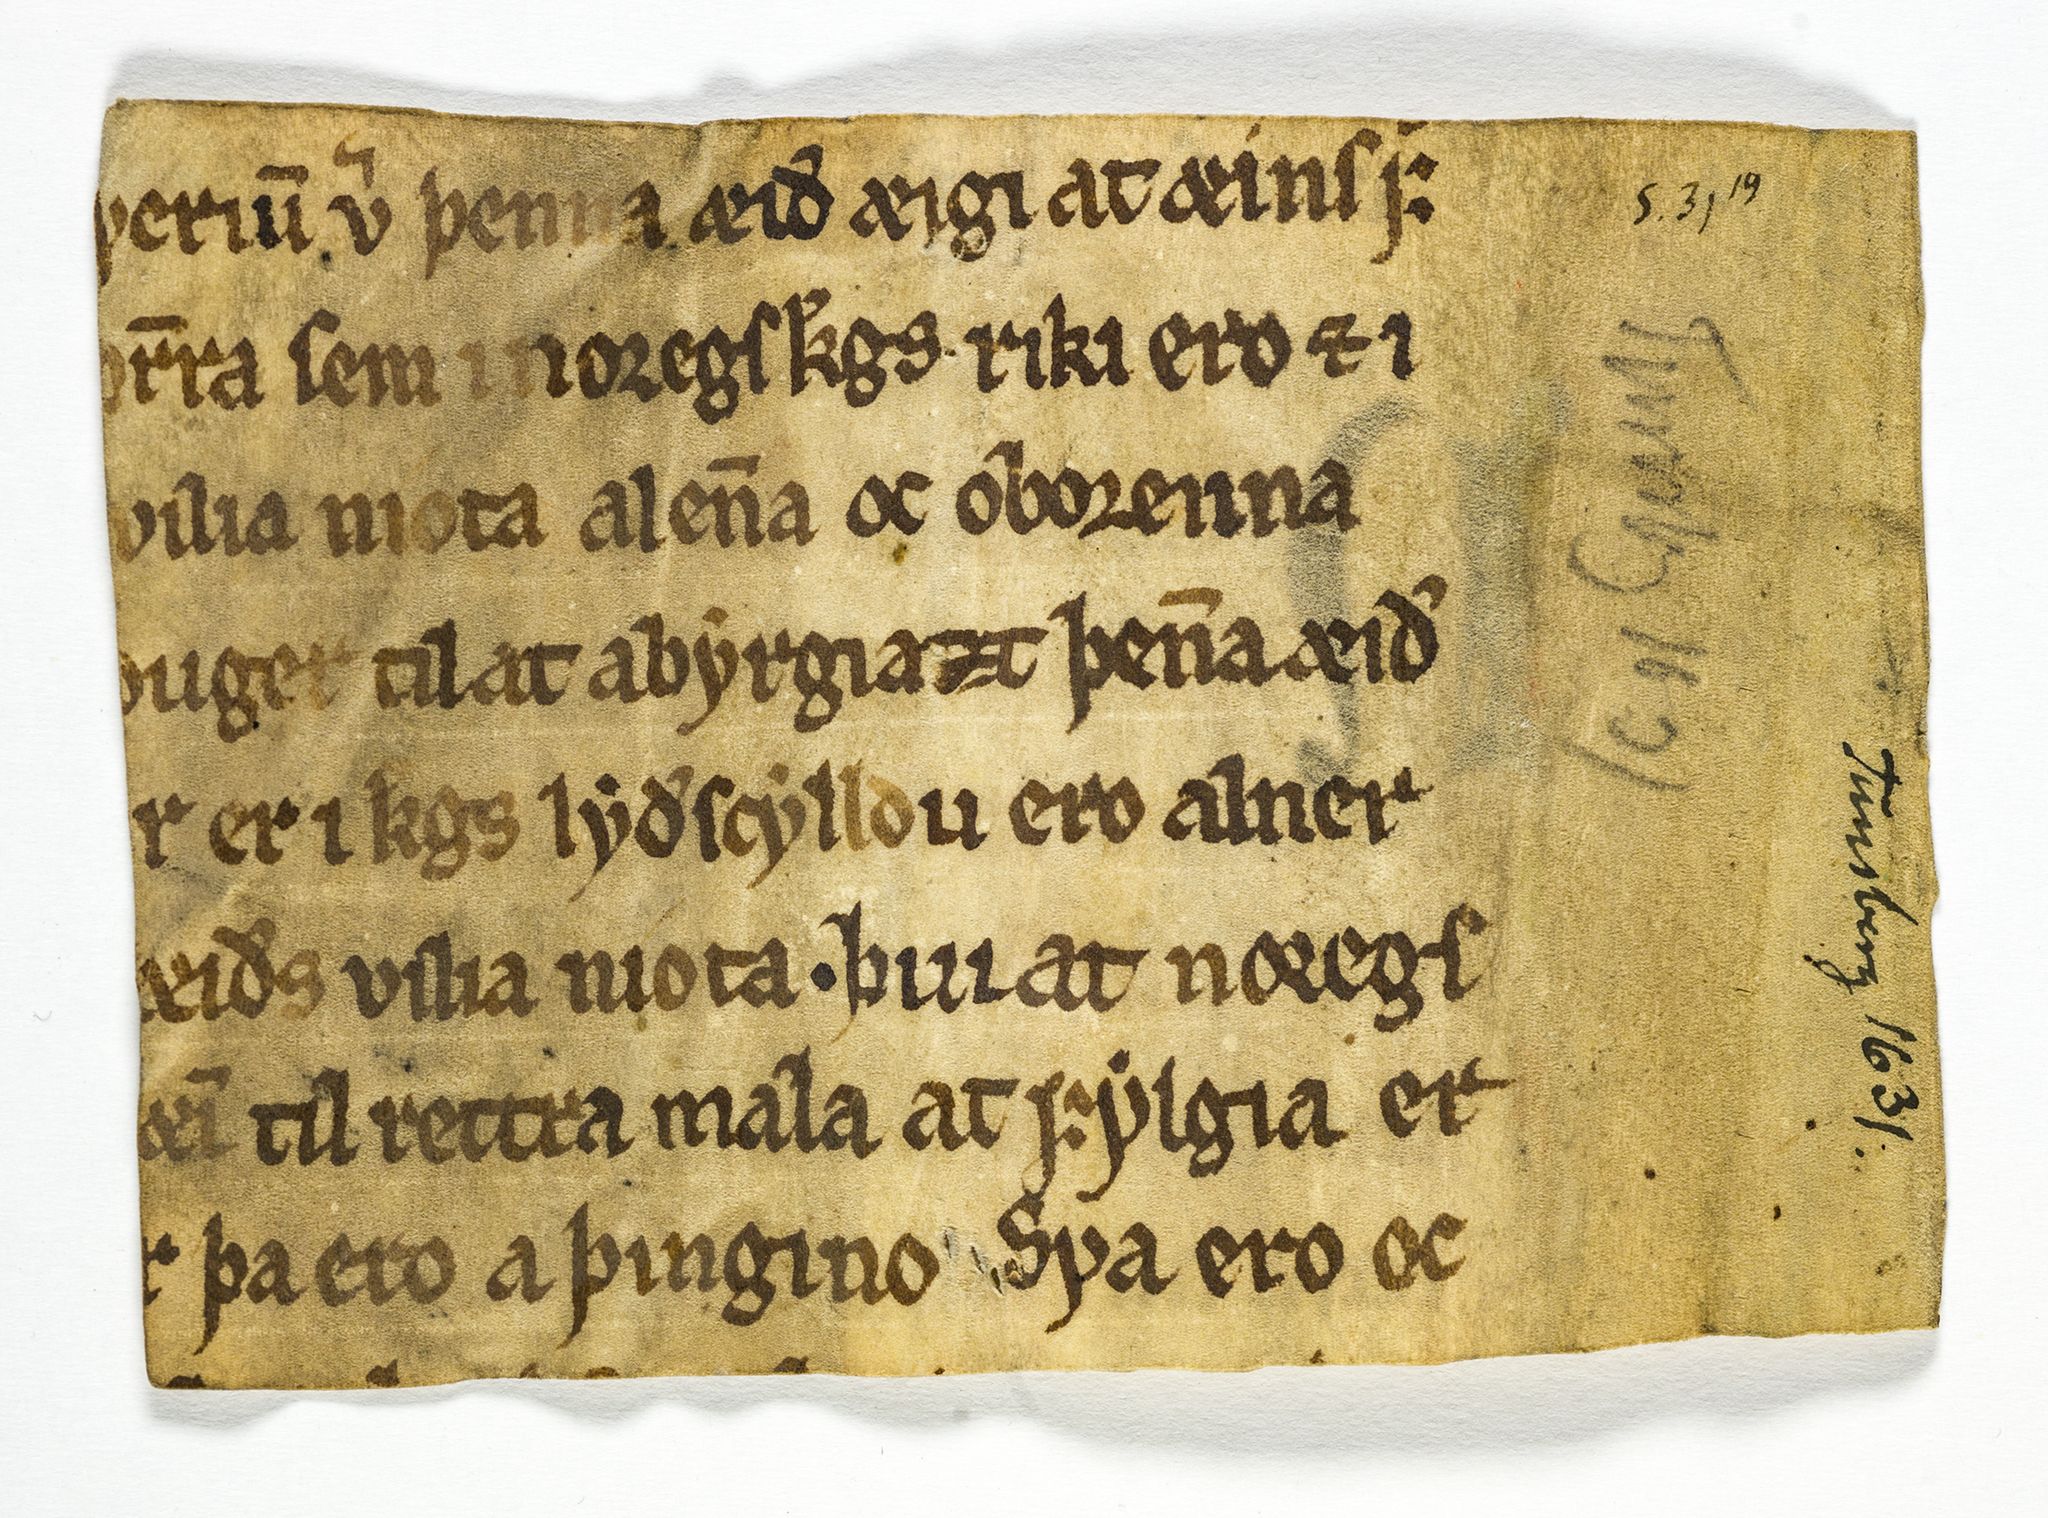 ꝩeriu̅ ꝩ͛ þenna æið æigi at æinſ ꝼ
orr̅a sem i noꝛegſ kgs riki ero ⁊ i
vilia niota alen̅a oc oboꝛenna
ouger til at abẏrgiazt þen̅a æið
r er i kgs lẏðſcẏlldu ero alner
æiðs vilia niota · þui at noꝛegſ
æi̅ til rettra mala at ꝼẏlgia er
r þa ero a þingino Sꝩa ero oc
S. 3, 19
Tunsberg 1631.